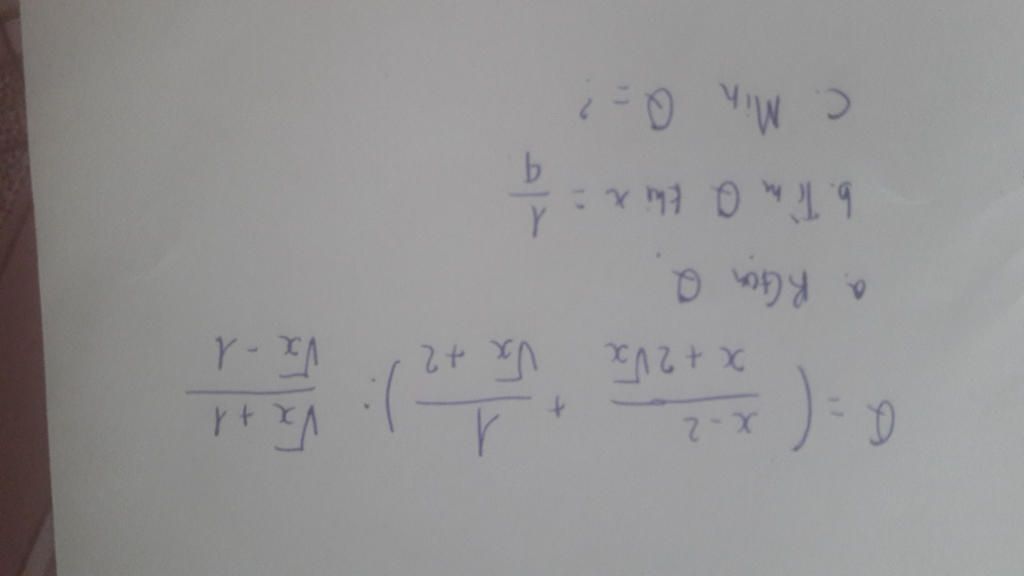 Q = ( x-2 / x+2√x + 1 / √x+2 ) : √x+1 / √x-1
a. RGọn Q.
b. Tìm Q khi x = 1/9
c. Min Q = ?